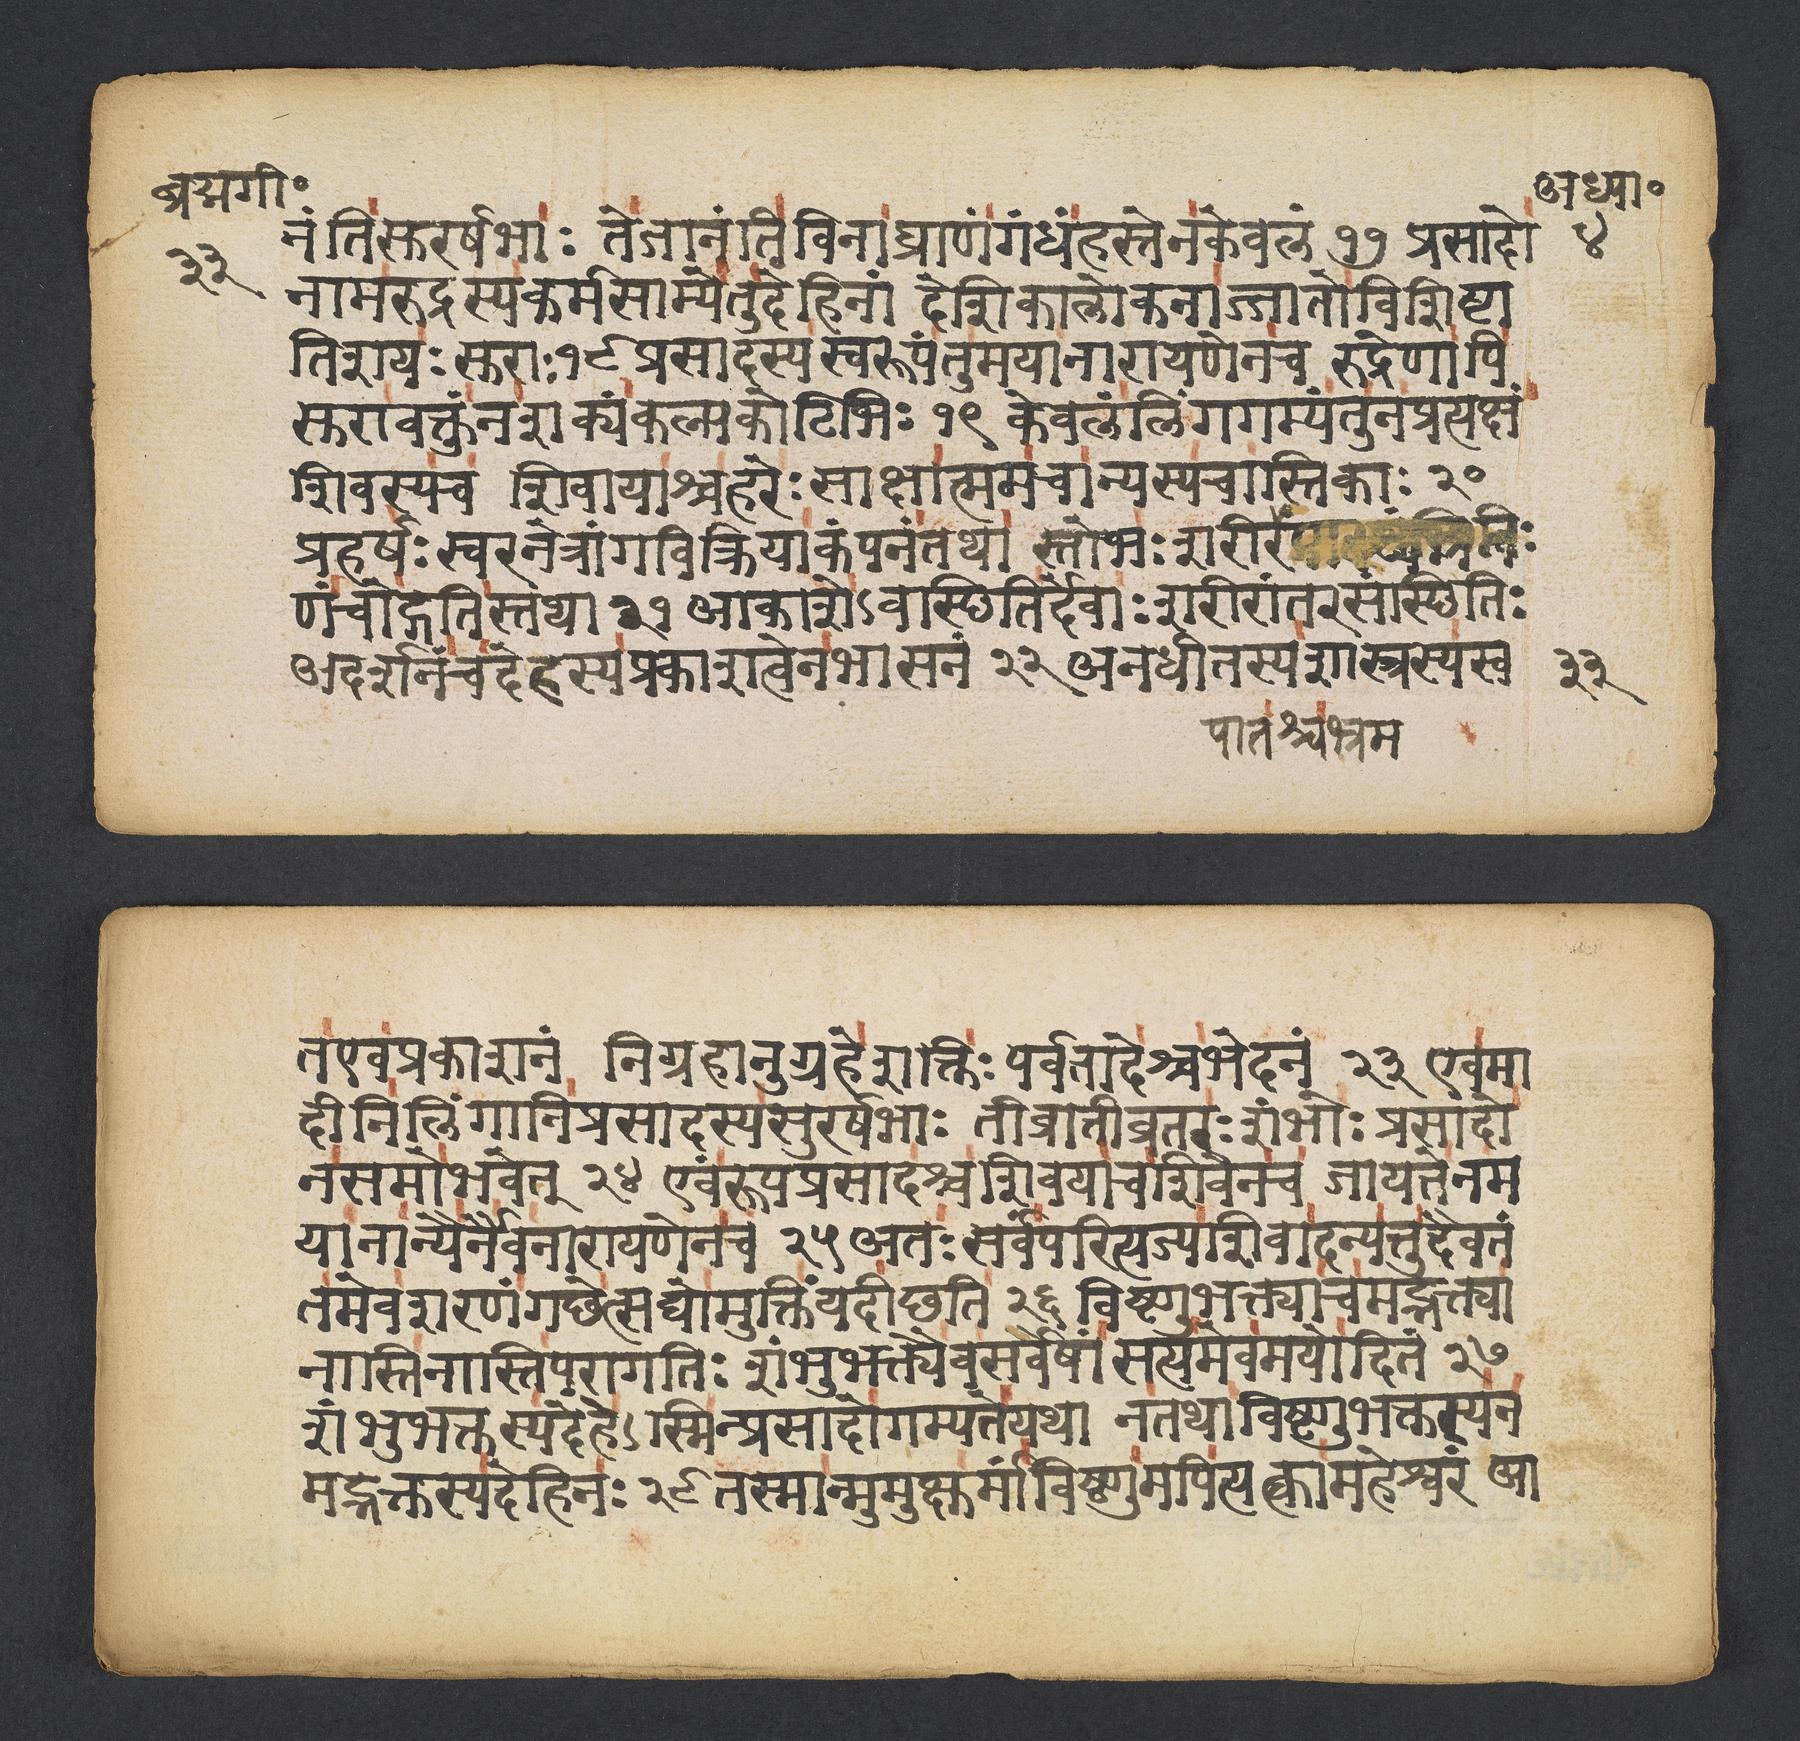 ब्रह्मगी०
अध्या०
३३
४
नंतिसुरर्षभाः तेजानंतिविनाघ्राणंगंधंहस्तेनकेवलं १७ प्रसादो
नामरुद्रस्यकर्मसाम्येतुदेहिनां देशिकालोकनाज्जातोविशिष्टा
तिशयःसुराः१८प्रसादस्यस्वरूपंतुमयानारायणेनच रुद्रेणापि
सुरावक्तुंनशक्यंकल्पकोटिभिः १९ केवलंलिंगगम्यंतुनप्रत्यक्षं
शिवस्यच शिवायाश्चहरेःसाक्षात्ममचान्यस्यचास्तिकाः २०
प्रहर्षःस्वरनेत्रांगविक्रियाकंपनंतथा स्तोभःशरीर
णंचोद्गतिस्तथा २१ आकाशेऽवास्छितिर्देवाःशरीरांतरसंस्छितिः
अदर्शनंचदेहस्यप्रकाशत्वेनभासनं २२ अनधीतस्यशास्त्रस्यस्व
३३
पातश्चभ्रम
तएवप्रकाशनं निग्रहानुग्रहेशक्तिःपर्वतादेश्चभेदनं २३ एवमा
दीनिलिंगानिप्रसादस्यसुरर्षभाः तीव्रातीव्रतरःशंभोःप्रसादो
नसमोभवेत् २४ एवंरूपप्रसादश्चशिवयाचशिवेनच जायतेनम
यानान्यैर्नैवनारायणेनच २५अतःसर्वंपरित्यज्यशिवादन्यत्तुदैवतं
तमेवशरणंगछेत्सद्योमुक्तिंयदीछति २६ विष्णुभक्त्याचमद्भक्त्या
नास्तिनास्तिपरागतिः शंभुभक्त्यैवसर्वेषां सत्यमेवमयोदितं २७
शंभुभक्तस्यदेहेऽस्मिन्प्रसादोगम्यतेयथा नतथाविष्णुभक्तस्यन
मद्भक्तस्यदेहिनः २८तस्मान्मुमुक्षुर्मांविष्णुमपित्यक्त्वामहेश्वरं आ